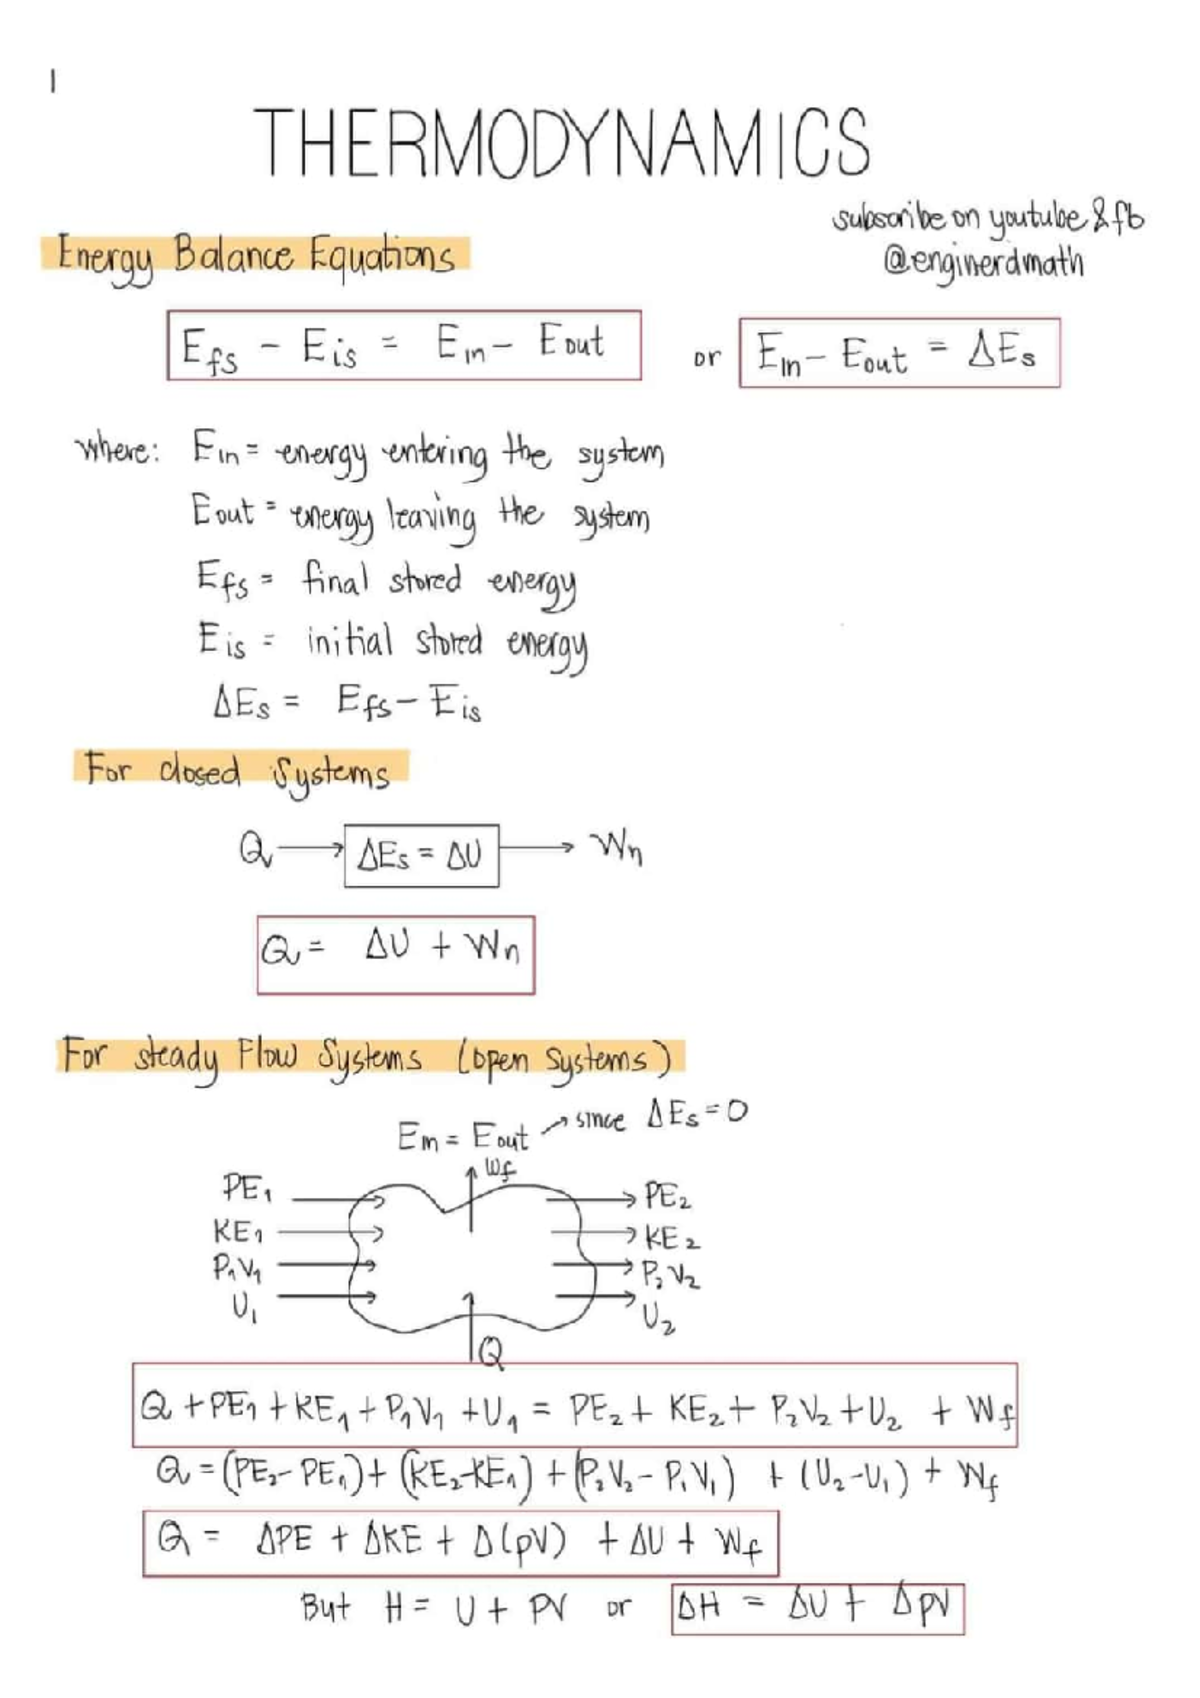 1
THERMODYNAMICS
subscribe on youtube & fb
@enginerdmath
Energy Balance Equations
Efs - Eis = Ein - Eout or Ein - Eout = ΔEs
where: Ein = energy entering the system
Eout = energy leaving the system
Efs = final stored energy
Eis = initial stored energy
ΔEs = Efs - Eis
For closed Systems
Q → ΔEs = ΔU → Wn
Q = ΔU + Wn
For steady Flow Systems (open systems)
Ein = Eout → since ΔEs = 0
Wf
PE₁ PE₂
KE₁ KE₂
P₁V₁ P₂V₂
U₁ U₂
Q
Q + PE₁ + KE₁ + P₁V₁ + U₁ = PE₂ + KE₂ + P₂V₂ + U₂ + Wf
Q = (PE₂ - PE₁) + (KE₂ - KE₁) + (P₂V₂ - P₁V₁) + (U₂ - U₁) + Wf
Q = ΔPE + ΔKE + Δ(pV) + ΔU + Wf
But H = U + PV or ΔH = ΔU + ΔpV